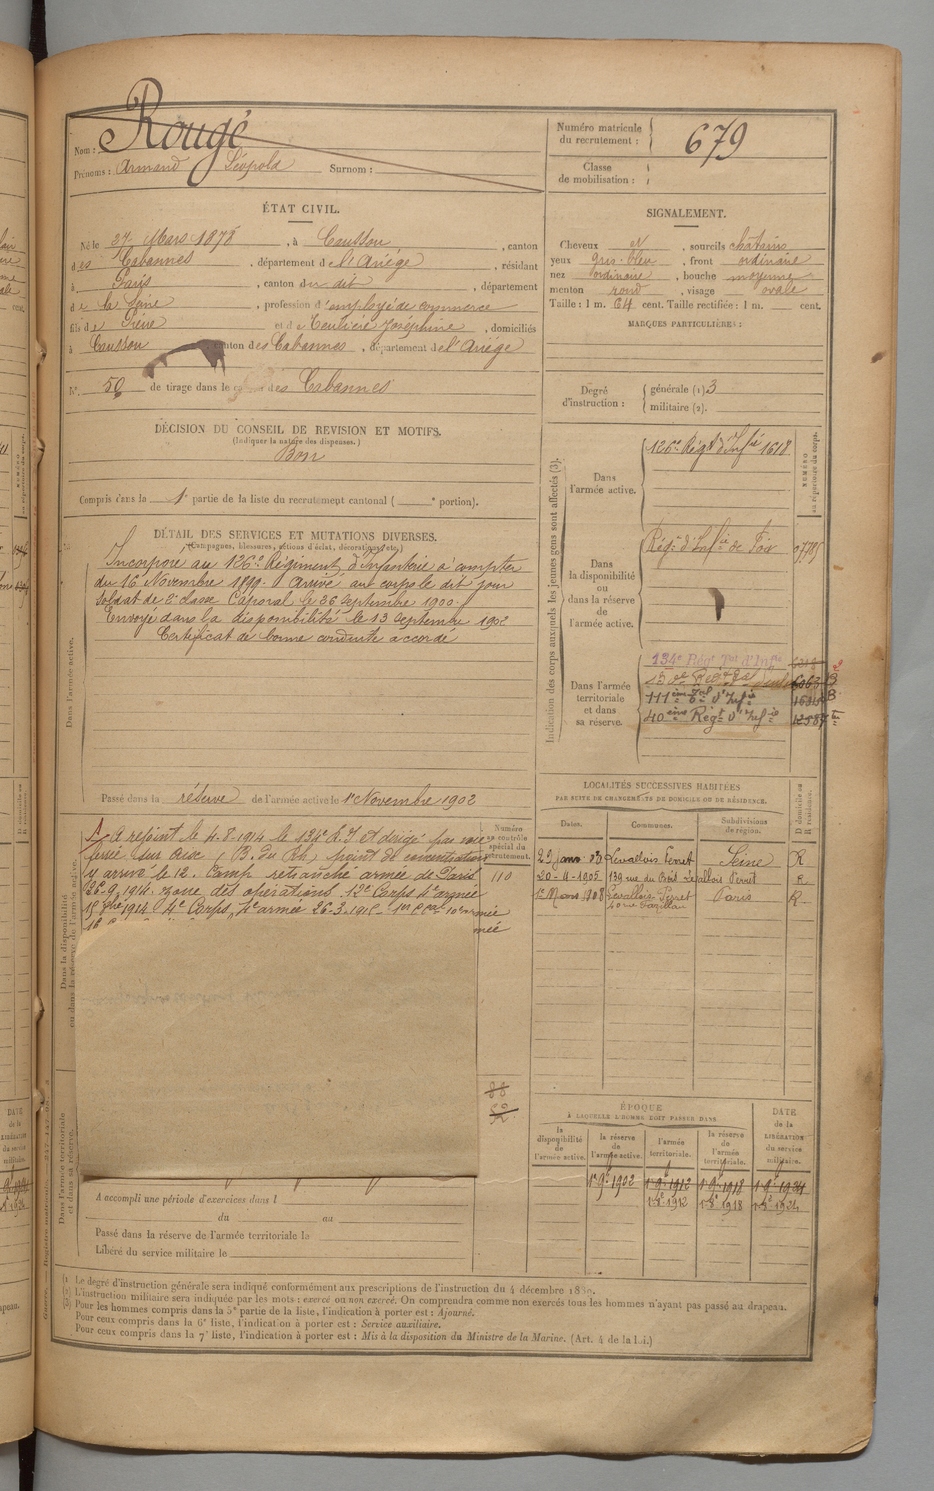 Nom : Rougé
Prénoms : Armand Léopold Surnom :
Numéro matricule du recrutement : 679
Classe de mobilisation :
ÉTAT CIVIL.
Né le 27 Mars 1878, à Caussou, canton
des Cabannes, département de l'Ariége, résidant
à Paris, canton du dit, département
de la Seine, profession d'employé de commerce
fils de Pierre et de Joséphine, domiciliés
à Caussou, canton des Cabannes, département de l'Ariége
N° 50 de tirage dans le canton des Cabannes
SIGNALEMENT.
Cheveux et, sourcils châtains
yeux gris-bleu, front ordinaire
nez ordinaire, bouche moyenne
menton rond, visage ovale
Taille : 1 m. 64 cent. Taille rectifiée : 1 m. cent.
MARQUES PARTICULIÈRES :
Degré d'instruction : générale (1) 3
militaire (2).
DÉCISION DU CONSEIL DE REVISION ET MOTIFS.
(Indiquer la nature des dispenses.)
Bon
Compris dans la 1e partie de la liste du recrutement cantonal ( e portion).
DÉTAIL DES SERVICES ET MUTATIONS DIVERSES.
(Campagnes, blessures, actions d'éclat, décorations, etc.)
Dans l'armée active.
Incorporé au 126e Régiment d'Infanterie à compter
du 16 Novembre 1899. Arrivé au corps le dit jour
Soldat de 2e classe Caporal le 26 Septembre 1900.
Envoyé dans la disponibilité le 13 Septembre 1902
Certificat de bonne conduite accordé
Passé dans la réserve de l'armée active le 1er Novembre 1902
Indication des corps auxquels les jeunes gens sont affectés (3).
NUMÉRO au répertoire du corps.
Dans l'armée active.
126e Régt d'Infie 1618
Dans la disponibilité ou dans la réserve de l'armée active.
Régt d'Infie de Foix
Dans l'armée territoriale et dans sa réserve.
134e Régt Tal d'Infie
111ème Tal d'Infie
40ème Régt d'Infie 12587
Dans la disponibilité ou dans la réserve de l'armée active.
A rejoint le 4-8-1914 le 134e R.I et dirigé par voie
ferrée sur Aix (B. du Rh) point de concentration
y arrive le 12. Camp retranché armée de Paris
26-9-1914. zone des opérations 12e Corps 4e armée
4e Corps, 4e armée 26-3-1915
Numéro au contrôle spécial du recrutement.
110
LOCALITÉS SUCCESSIVES HABITÉES
PAR SUITE DE CHANGEMENTS DE DOMICILE OU DE RÉSIDENCE.
Dates. Communes. Subdivisions de région. D domicile ou R résidence.
29 Janv. 03 Levallois Perret Seine R
20-11-1905 139 rue du Bois Levallois Perret R
1er Mars 1908 Levallois-Perret Paris R
40 rue Fazillau
ÉPOQUE
À LAQUELLE L'HOMME DOIT PASSER DANS
la disponibilité de l'armée active. la réserve de l'armée active. l'armée territoriale. la réserve de l'armée territoriale. DATE de la LIBÉRATION du service militaire.
1-9e 1902 1-9e 1912 1-9e 1918 1-9e 1924
1-8e 1912 1-8e 1918 1-8e 1924
Dans l'armée territoriale et dans sa réserve.
A accompli une période d'exercices dans l
du au
Passé dans la réserve de l'armée territoriale le
Libéré du service militaire le
(1) Le degré d'instruction générale sera indiqué conformément aux prescriptions de l'instruction du 4 décembre 1889.
(2) L'instruction militaire sera indiquée par les mots : exercé ou non exercé. On comprendra comme non exercés tous les hommes n'ayant pas passé au drapeau.
(3) Pour les hommes compris dans la 5e partie de la liste, l'indication à porter est : Ajourné.
Pour ceux compris dans la 6e liste, l'indication à porter est : Service auxiliaire.
Pour ceux compris dans la 7e liste, l'indication à porter est : Mis à la disposition du Ministre de la Marine. (Art. 4 de la Loi.)